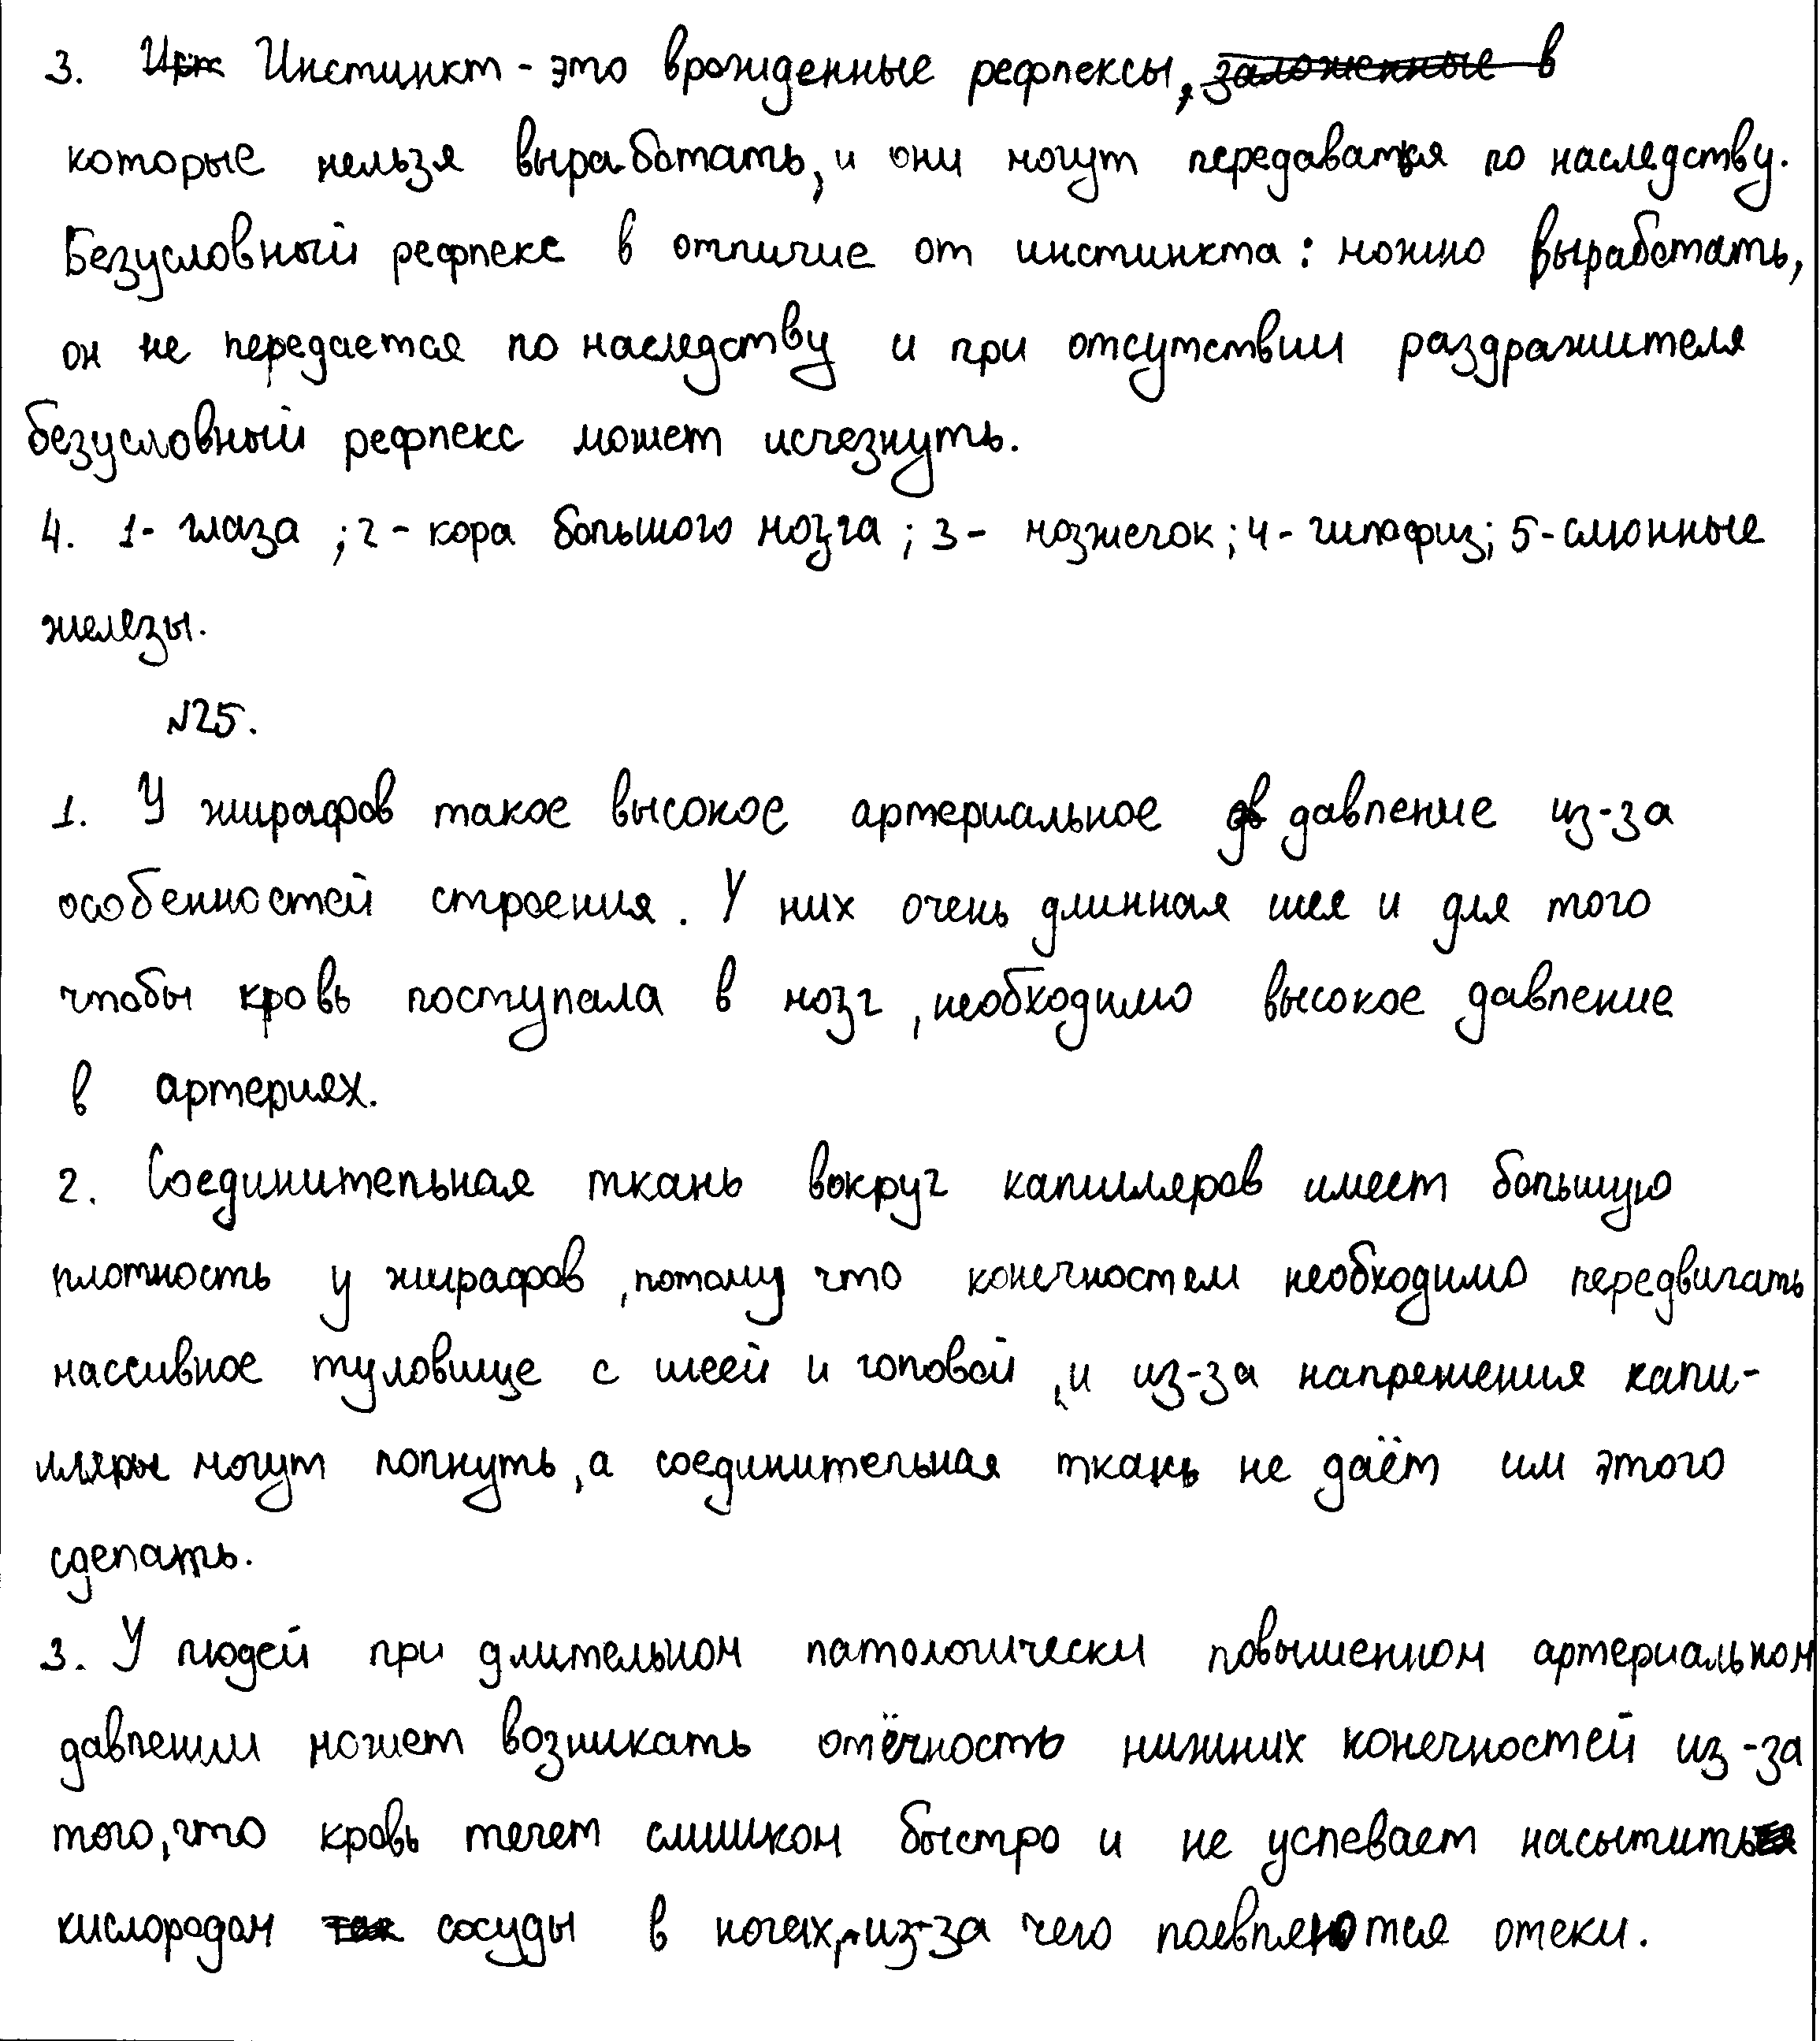 3. Инстинкт - это врожденные рефлексы, заложенные в
которые нельзя выработать, и они могут передаватся по наследству.
Безусловный рефлекс в отличие от инстинкта: можно выработать,
он не передается по наследству и при отсутствии раздражителя
безусловный рефлекс может исчезнуть.
4. 1- глаза ; 2 - кора большого мозга ; 3 - мозжечок ; 4 - гипофиз; 5 - слюнные
железы.
№25.
1. У жирафов такое высокое артериальное дв давление из-за
особенностей строения. У них очень длинная шея и для того
чтобы кровь поступала в мозг, необходимо высокое давление
в артериях.
2. Соединительная ткань вокруг капилляров имеет большую
плотность у жирафов, потому что конечностям необходимо передвигать
массивное туловище с шеей и головой, и из-за напряжения капи-
лляры могут лопнуть, а соединительная ткань не даёт им этого
сделать.
3. У людей при длительном патологически повышенном артериальном
давлении может возникать отёчность нижних конечностей из-за
того, что кровь течет слишком быстро и не успевает насытить
кислородом так сосуды в ногах, из-за чего появляются отеки.